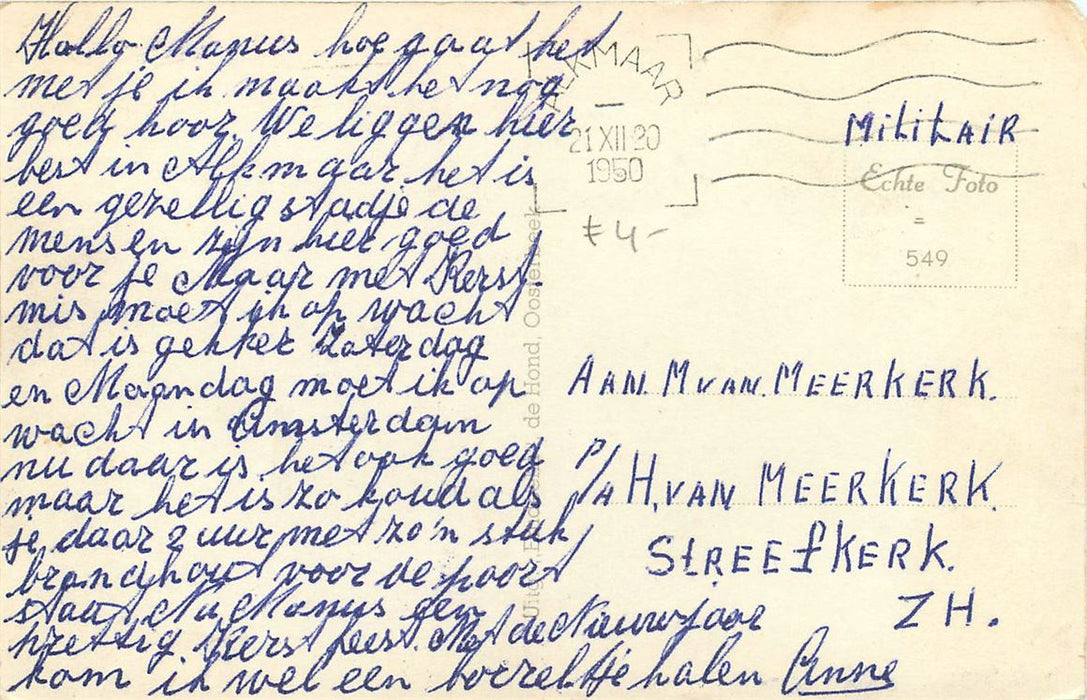 Hallo Manus hoe gaat het
met je ik maak het nog
goed hoor. We liggen hier
best in Alkmaar het is
een gezellig stadje de
mensen zijn hier goed
voor je Maar met Kerst
mis moet ik op wacht
dat is gekker Zaterdag
en Maandag moet ik op
wacht in Amsterdam
nu daar is het ook goed
maar het is zo koud als
je daar 2 uur met zo'n stuk
brandhout voor de poort
staat Nu Manus een
prettig Kerstfeest. Met de Nieuwjaar
kom ik wel een borreltje halen Anne
ALKMAAR
21 XII 20
1950
£4-
MILITAIR
Echte Foto
=
549
AAN. M VAN. MEERKERK.
P/A H. VAN MEERKERK.
STREEFKERK.
ZH.
de Hond, Oosterbeek